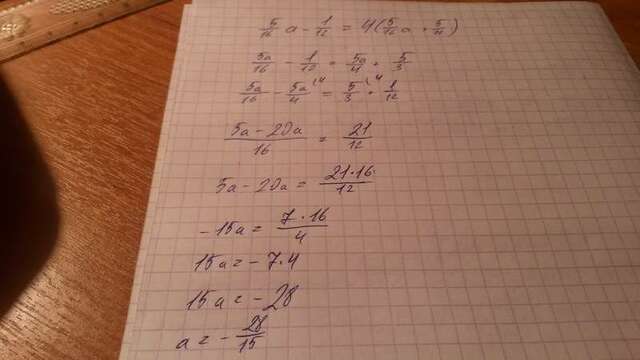 5/16 a - 1/12 = 4(5/16 a + 5/12)
5a/16 - 1/12 = 5a/4 + 5/3
5a/16 - 5a/4 \4 = 5/3 \4 + 1/12
5a - 20a/16 = 21/12
5a - 20a = 21·16/12
- 15a = 7·16/4
15a = - 7·4
15a = - 28
a = - 28/15